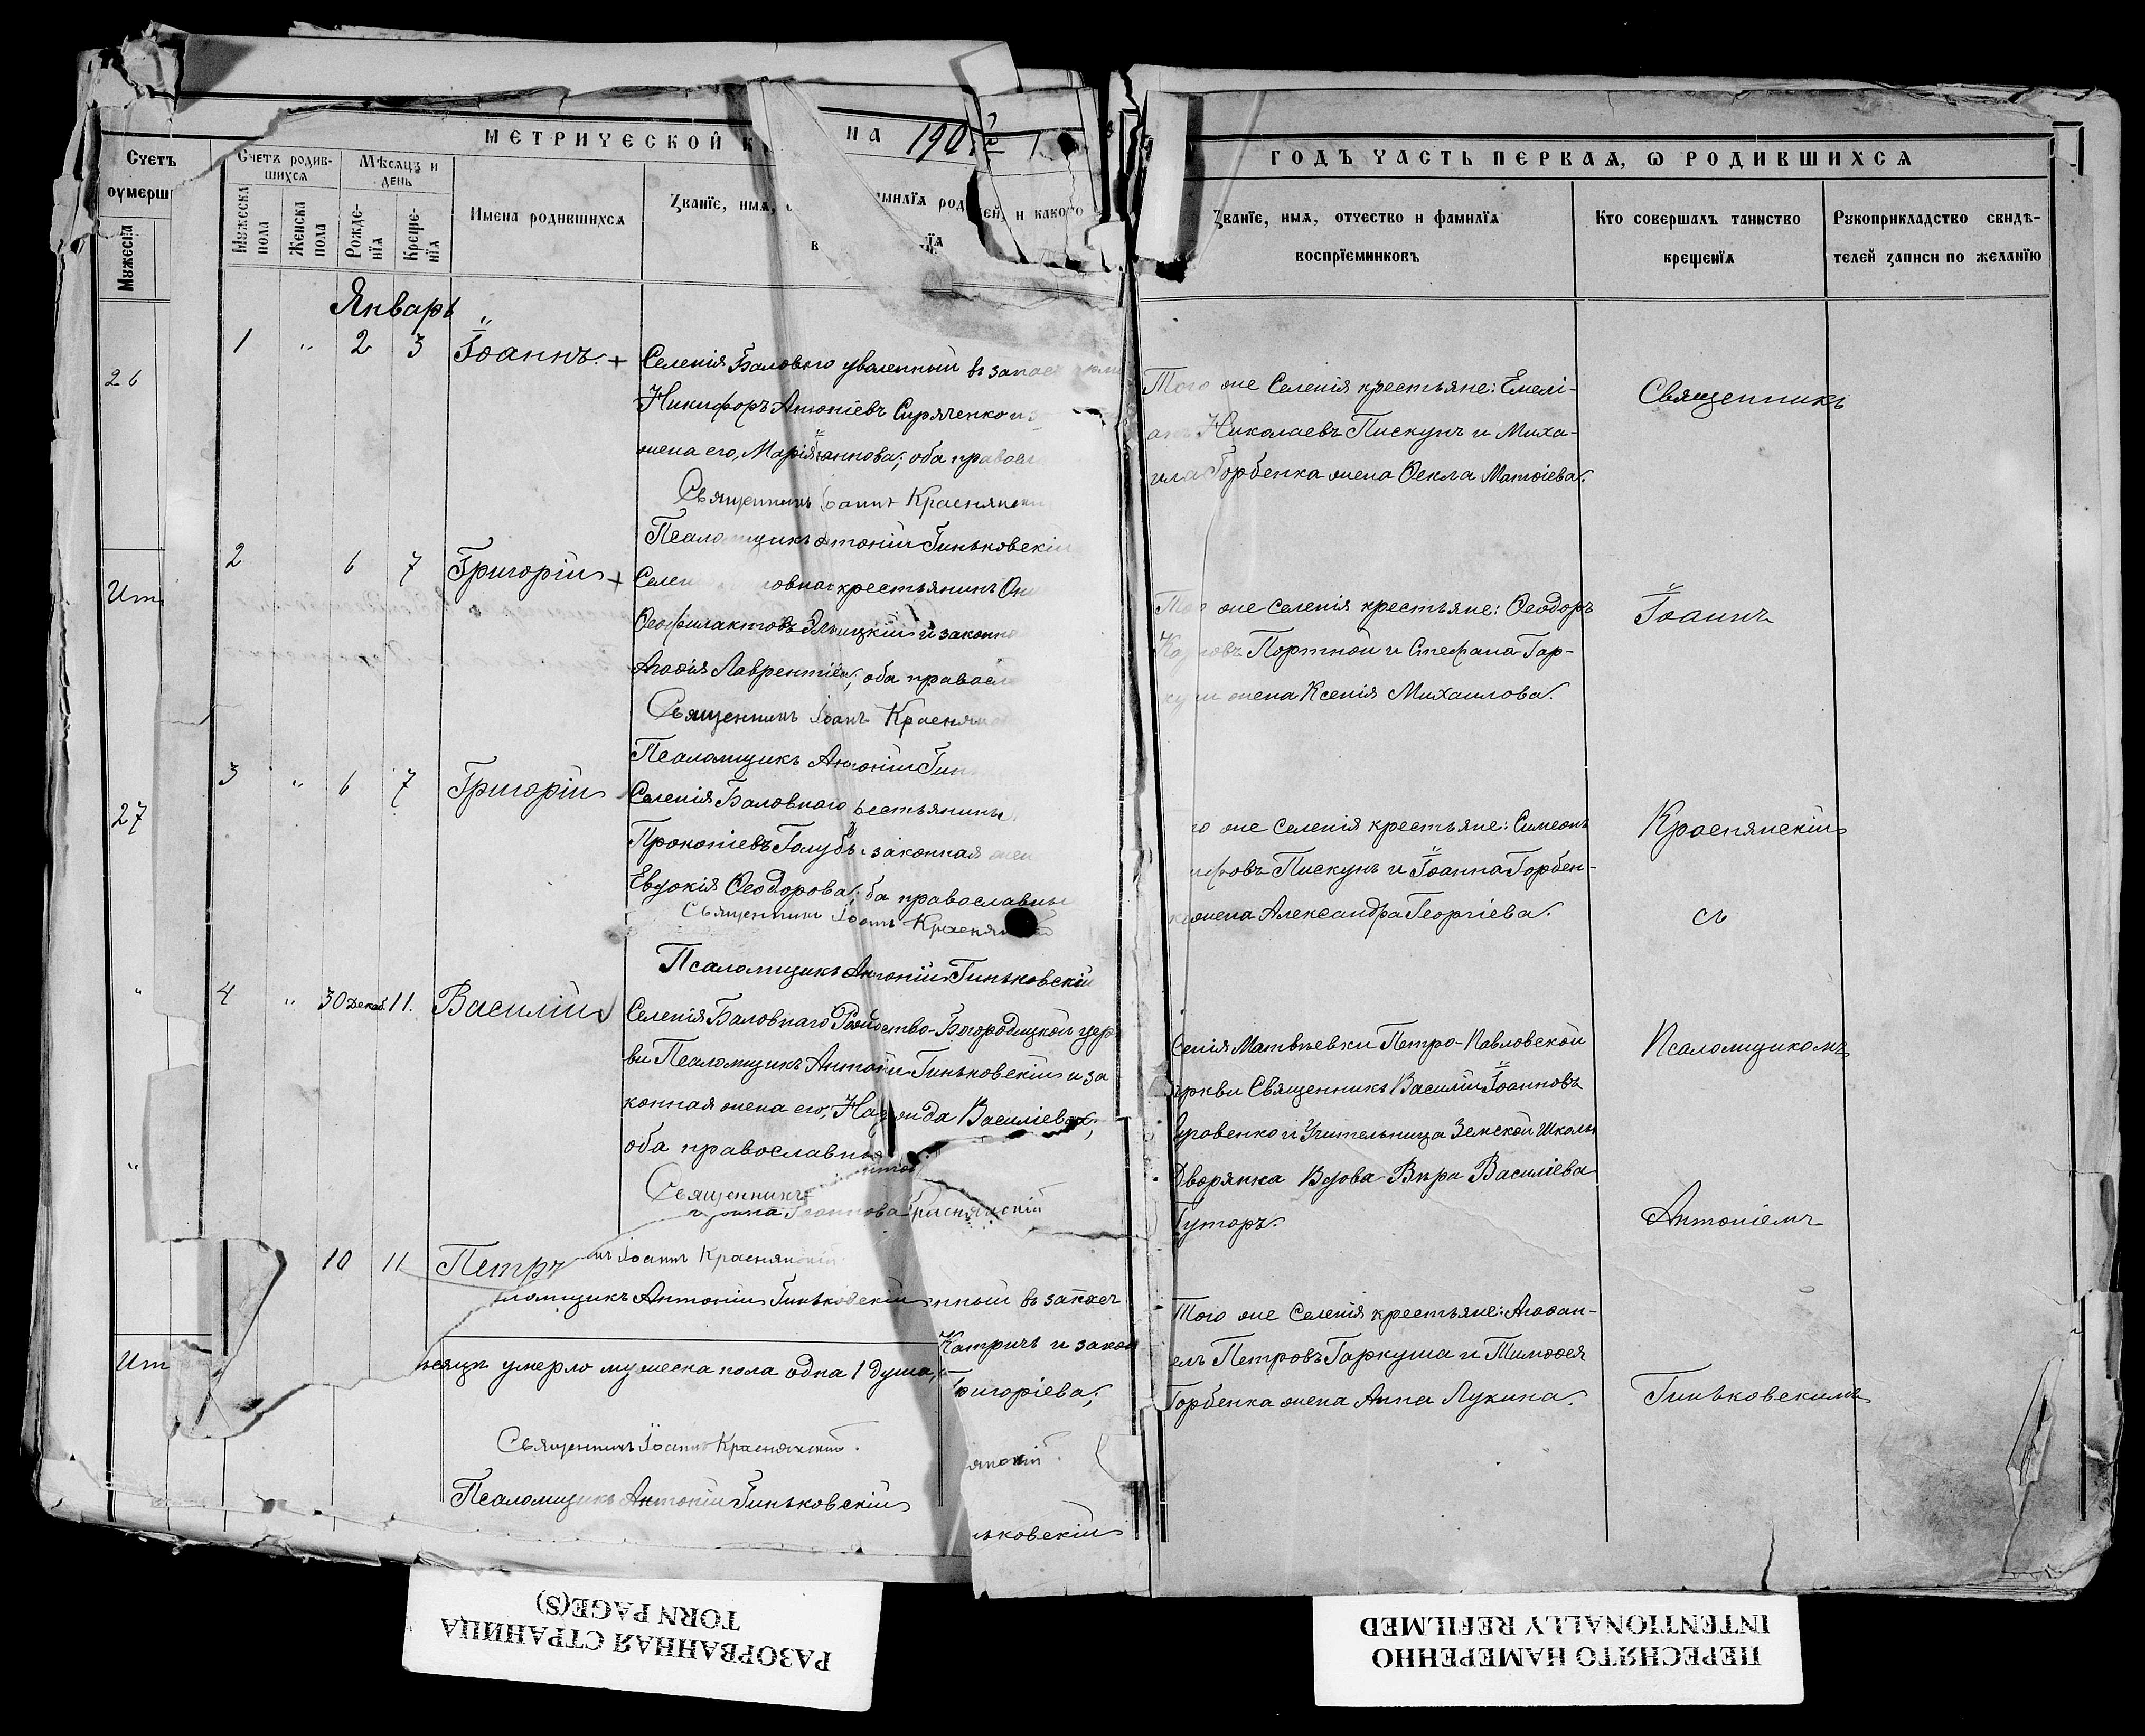 МЕТРИЧЕСКОЙ К
НА 190
ГОДЪ ЧАСТЬ ПЕРВАЯ, Ѡ РОДИВШИХСЯ
Счетъ
оумерш
Мужеска
Счетъ родив-
шихся
Мужеска
пола
Женска
пола
Мѣсяцъ и
день
Рожде-
нїя
Креще-
нїя
Имена родившихся
Званїе, имя,
милїя род
ей, и какого
в
їя
Званїе, имя, отчество и фамилїя
воспрїемниковъ
Кто совершалъ таинство
крещенїя
Рукоприкладство свидѣ-
телей записи по желанїю
Январь
26
1 " 2 3 Іоаннъ. +
Селенія Баловнаго уволенный въ запас
Никифоръ Антоніевъ Сиряченко и з
жена его, Марія Іоаннова; оба правосл
Священникъ Іоаннъ Краснянск
Псаломщикъ Антоній Гиньковскій
Того же Селенія крестьяне: Емелі-
анъ Николаевъ Пискунъ и Миха-
ила Горбенка жена Ѳекла Матѳіева.
Священникъ
Ит
2 6 7 Григорій +
Селен овнаго крестьянинъ
Ѳеофилактовъ Яльицкій и законн
Агаѳія Лаврентіева; оба правосл
Священникъ Іоаннъ Краснянск
Псаломщикъ Антоній Гин
же селенія крестьяне: Ѳеодоръ
Портной и Стефана Гар-
куши жена Ксенія Михаилова.
Іоаннъ
27
3 " 6 7 Григорій
Селенія Баловнаго рестьянинъ
Прокопіевъ Голубъ и законная жен
Евдокія Ѳеодорова; ба православны
Священникъ Іоаннъ Краснянскій
Псаломщикъ Антоній Гиньковскій
го же Селенія крестьяне: Симеонъ
ифовъ Пискунъ и Іоанна Горбен-
ка жена Александра Георгіева.
Краснянскій
съ
"
4 " 30 Декаб. 11. Василій
Селенія Баловнаго Рождество-Богородицкой цер
ви Псаломщикъ Антоній Гиньковскій и за
конная жена его, Василіева;
оба православны
Священникъ
Іоаннова Краснянскій
Селенія Матвѣевки Петро-Павловской
церкви Священникъ Василій Іоанновъ
и Учительница Земской Школы
Дворянка Вдова Вѣра Василіева
Гуторъ.
Псаломщикомъ
Антоніемъ
"
10 11 Петръ
нъ Іоаннъ Краснянскій
ломщикъ Антоній Гиньковскій
нный въ запасъ
Катричъ и закон
Григоріева;
янскій
ньковскій
Того же Селенія крестьяне: Агаѳан-
елъ Петровъ Гаркуша и Тимоѳея
Горбенка жена Анна Лукина.
Гиньковскимъ
Ит
ѣсяцѣ умерло мужеска пола одна 1 душа,
Священникъ Іоаннъ Краснянскій.
Псаломщикъ Антоній Гиньковскій
РАЗОРВАННАЯ СТРАНИЦА
TORN PAGE(S)
ПЕРЕСНЯТО НАМЕРЕННО
INTENTIONALLY REFILMED